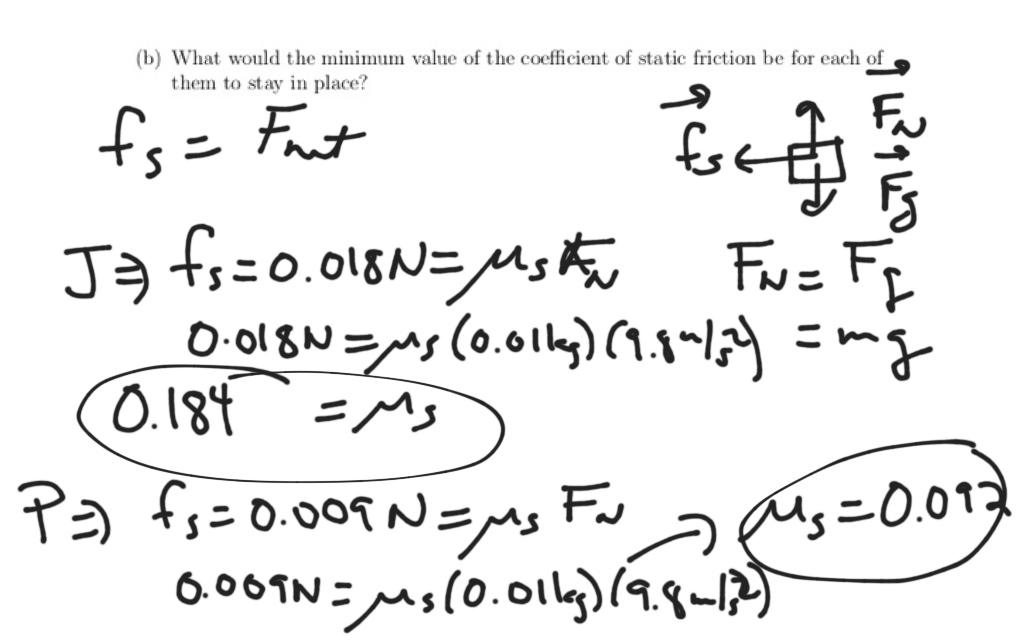 (b) What would the minimum value of the coefficient of static friction be for each of
them to stay in place?
fs = Fnet
fs
FN
Fg
J⇒ fs = 0.018N = μs FN
FN = Fg
0.018N = μs (0.01kg)(9.8m/s²)
= mg
0.184 = μs
P⇒ fs = 0.009N = μs FN
μs = 0.092
0.009N = μs (0.01kg)(9.8m/s²)